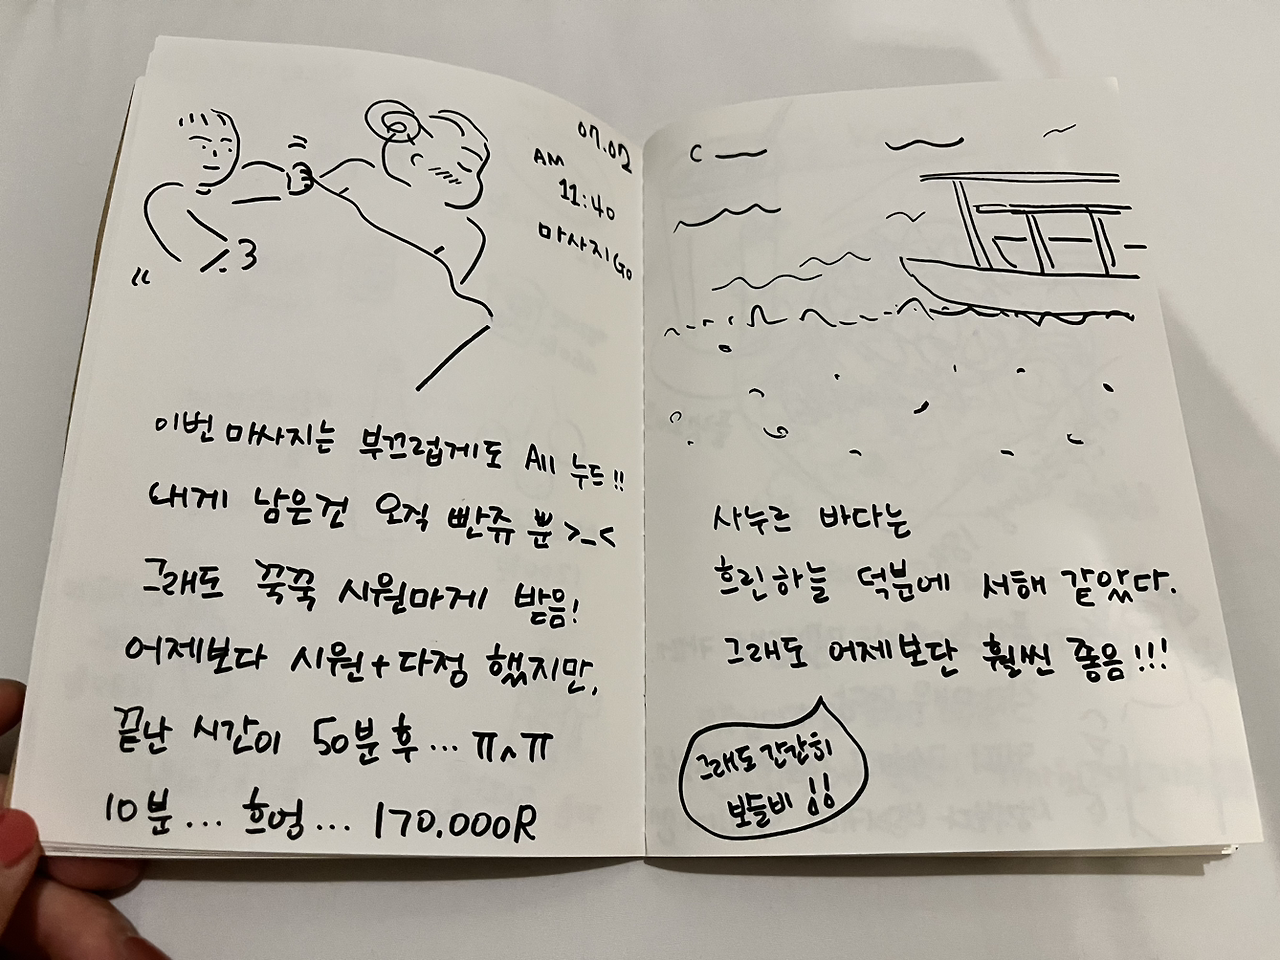 07.02
AM
11:40
마사지 GO
이번 마사지는 부끄럽게도 All 누드!!
내게 남은건 오직 빤쮸 뿐 >_<
그래도 꾹꾹 시원하게 받음!
어제보다 시원+다정 했지만,
끝난 시간이 50분 후... ㅠㅅㅠ
10분... 흐엉... 170.000R
사누르 바다는
흐린하늘 덕분에 서해 같았다.
그래도 어제보단 훨씬 좋음!!!
그래도 간간히
보슬비 !!